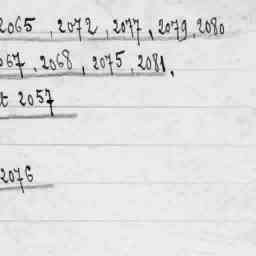 2065, 2072, 2077, 2079, 2080
067, 2068, 2075, 2081,
t 2057
2076